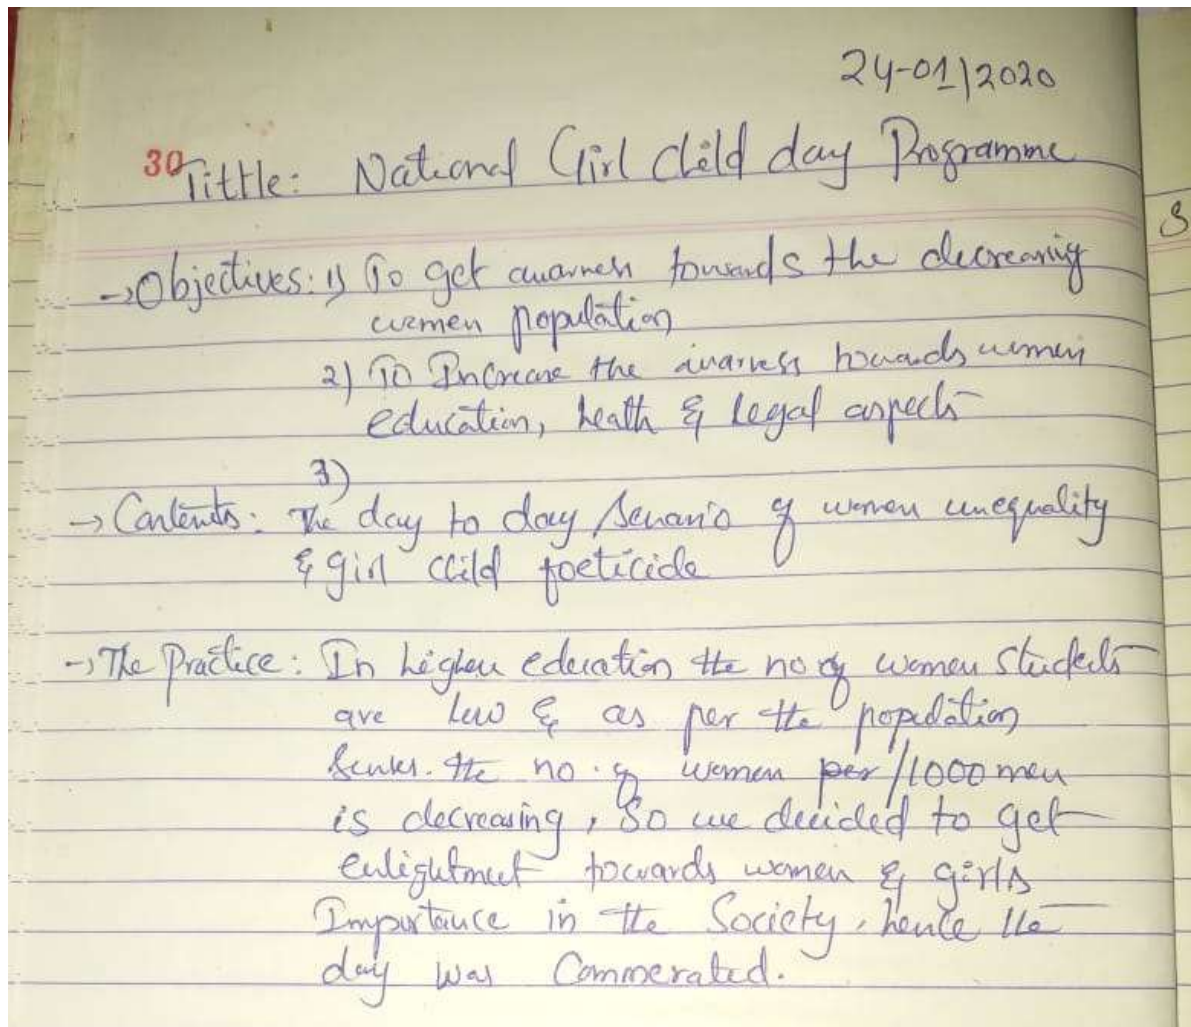 24-01/2020
30
Tittle: National Girl Child day Programme
→Objectives: 1) To get awarness towards the decreasing
women population
2) To Increase the awarness towards women
education, health & Legal aspects
3)
→ Contents: The day to day Senario of women unequality
& girl child foeticide
→ The Practice: In higher education the no of women students
are low & as per the population
Senses. the no. of women per/1000 men
is decreasing, So we decided to get
enlightment towards women & girls
Importance in the Society, hence the
day was Commerated.
S